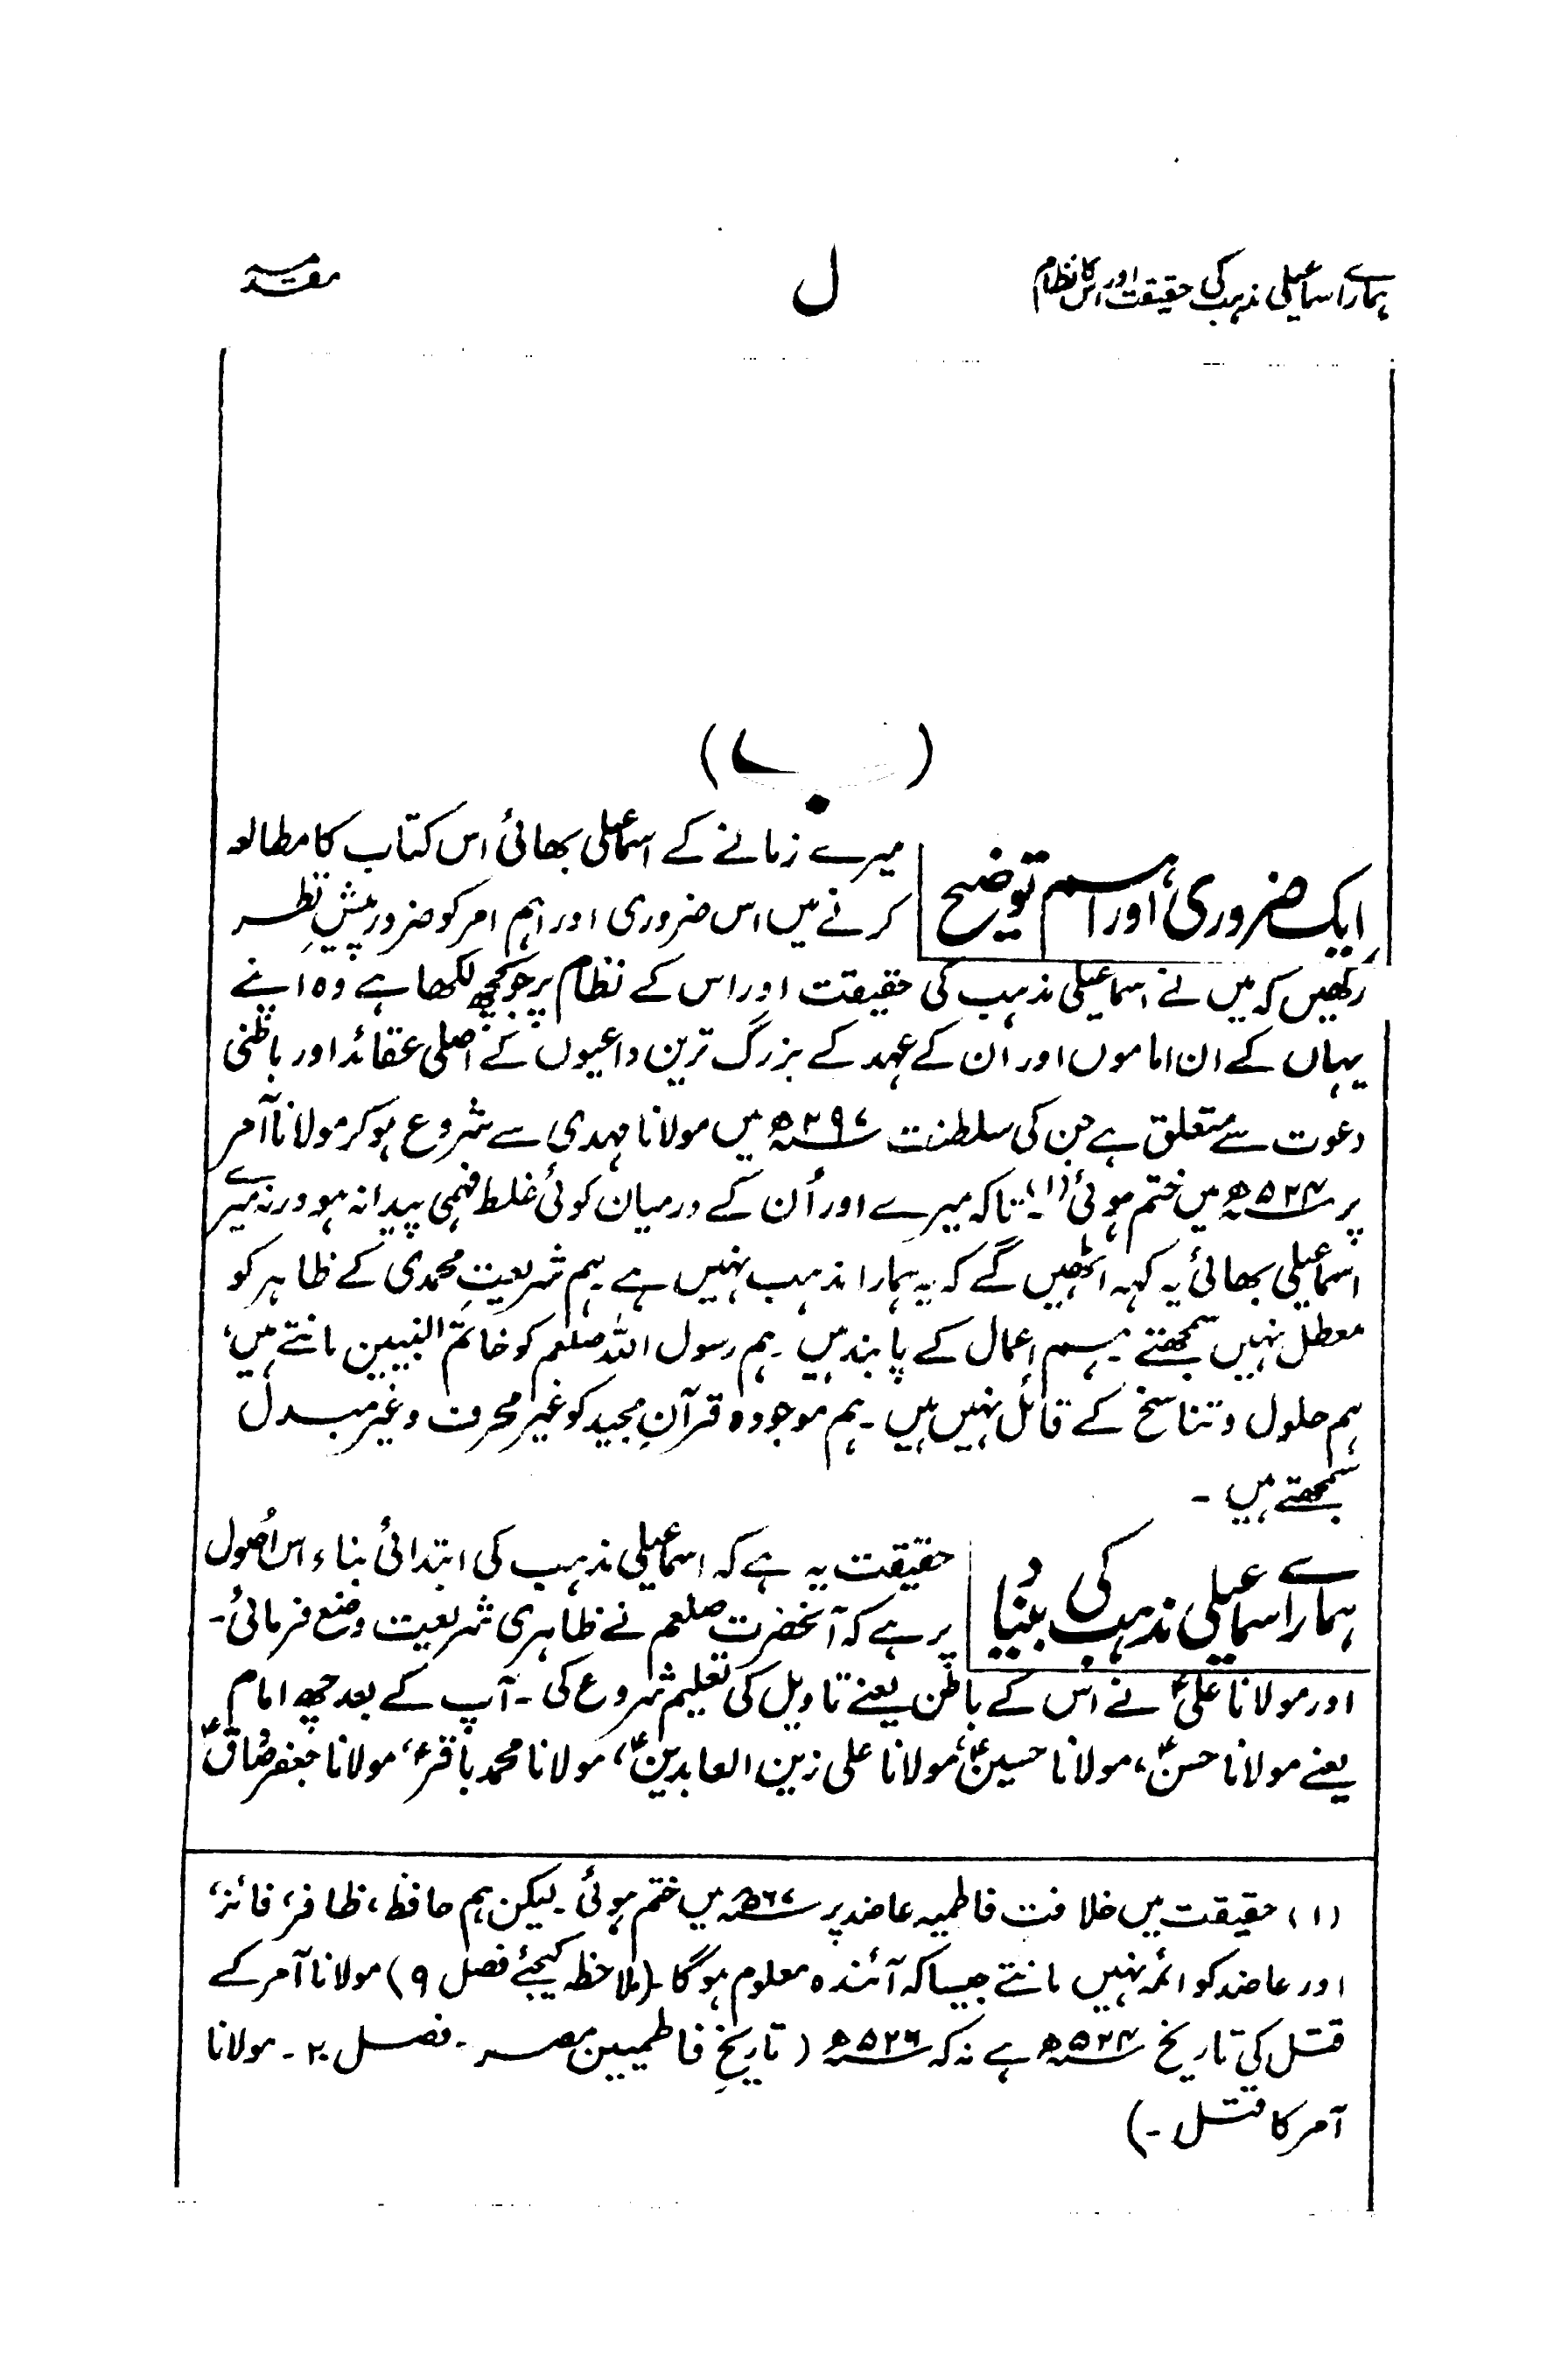 ہمارے اسماعیلی مذہب کی حقیقت اور اس کا نظام
ل
مقدمہ
(ب)
ایک ضروری اور اہم توضیح
میرے زمانے کے اسماعیلی بھائی اس کتاب کا مطالعہ
کرنے میں اس ضروری اور اہم امر کو ضرور پیشِ نظر
رکھیں کہ میں نے اسماعیلی مذہب کی حقیقت اور اس کے نظام پر جو کچھ لکھا ہے وہ اپنے
یہاں کے ان اماموں اور ان کے عہد کے بزرگ ترین داعیوں کے اصلی عقائد اور باطنی
دعوت سے متعلق ہے جن کی سلطنت ۲۹۷ھ میں مولانا مہدی سے شروع ہو کر مولانا آمر
پر ۵۲۴ھ میں ختم ہوئی (۱)۔ تاکہ میرے اور اُن کے درمیان کوئی غلط فہمی پیدا نہ ہو ورنہ میرے
اسماعیلی بھائی یہ کہہ اٹھیں گے کہ یہ ہمارا مذہب نہیں ہے ہم شریعتِ محمدی کے ظاہر کو
معطل نہیں سمجھتے ہم اعمال کے پابند ہیں ۔ ہم رسول اللہ صلعم کو خاتم النبیین مانتے ہیں،
ہم حلول و تناسخ کے قائل نہیں ہیں ۔ ہم موجودہ قرآنِ مجید کو غیر محرف و غیر مبدل
سمجھتے ہیں ۔
ہمارے اسماعیلی مذہب کی بُنیاد
حقیقت یہ ہے کہ اسماعیلی مذہب کی ابتدائی بناء اس اُصول
پر ہے کہ آنحضرت صلعم نے ظاہری شریعت وضع فرمائی ۔
اور مولانا علیؑ نے اس کے باطن یعنے تاویل کی تعلیم شروع کی ۔ آپ کے بعد چھ امام
یعنے مولانا حسنؑ، مولانا حسینؑ، مولانا علی زین العابدینؑ، مولانا محمد باقرؑ، مولانا جعفر صادقؑ
(۱) حقیقت میں خلافت فاطمیہ عاضد پر ۵۶۷ھ میں ختم ہوئی ۔ لیکن ہم حافظ، ظافر، فائز،
اور عاضد کو ائمہ نہیں مانتے جیسا کہ آئندہ معلوم ہوگا ۔ (ملاحظہ کیجئے فصل ۹) مولانا آمر کے
قتل کی تاریخ ۵۲۴ھ ہے نہ کہ ۵۲۶ھ (تاریخِ فاطمیین مصر ۔ فصل ۲۰ ۔ مولانا
آمر کا قتل ۔)